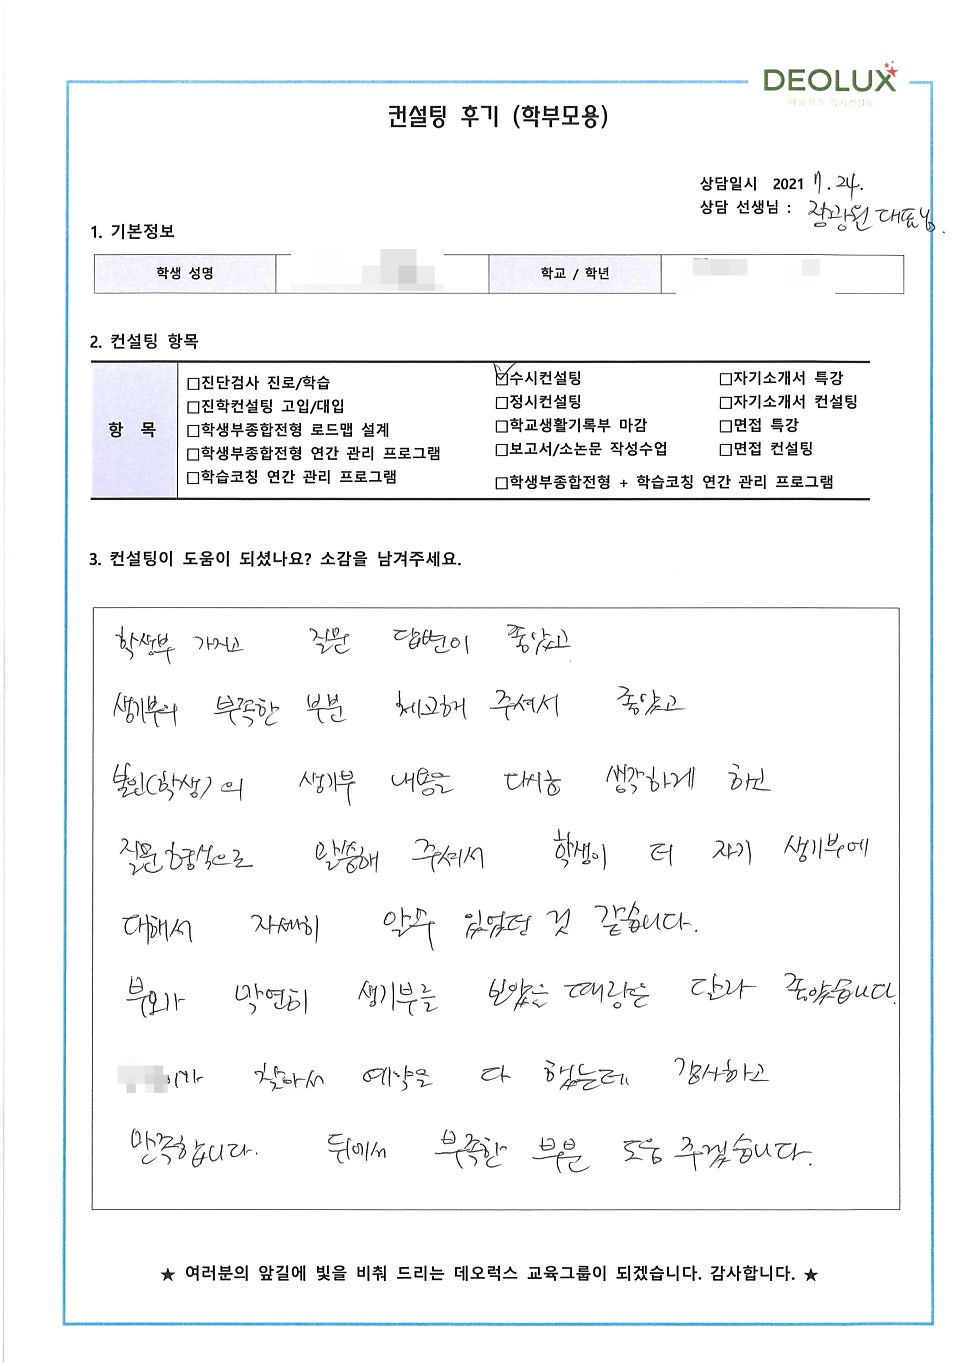 DEOLUX
데오럭스 입시컨설팅
컨설팅 후기 (학부모용)
상담일시 2021 7. 24.
상담 선생님 : 정광원 대표님.
1. 기본정보
학생 성명
학교 / 학년
2. 컨설팅 항목
항 목
□진단검사 진로/학습
□진학컨설팅 고입/대입
□학생부종합전형 로드맵 설계
□학생부종합전형 연간 관리 프로그램
□학습코칭 연간 관리 프로그램
☑수시컨설팅
□정시컨설팅
□학교생활기록부 마감
□보고서/소논문 작성수업
□학생부종합전형 + 학습코칭 연간 관리 프로그램
□자기소개서 특강
□자기소개서 컨설팅
□면접 특강
□면접 컨설팅
3. 컨설팅이 도움이 되셨나요? 소감을 남겨주세요.
학생부 가지고 질문 답변이 좋았고
생기부의 부족한 부분 체크해 주셔서 좋았고
본인(학생)의 생기부 내용을 다시금 생각하게 하신
질문형식으로 말씀해 주셔서 학생이 더 자기 생기부에
대해서 자세히 알수 있었던 것 같습니다.
부모가 막연히 생기부를 보았을 때랑은 달라 좋았습니다.
이가 찾아서 예약을 다 했는데 감사하고
만족합니다. 뒤에서 부족한 부분 도움 주겠습니다.
★ 여러분의 앞길에 빛을 비춰 드리는 데오럭스 교육그룹이 되겠습니다. 감사합니다. ★